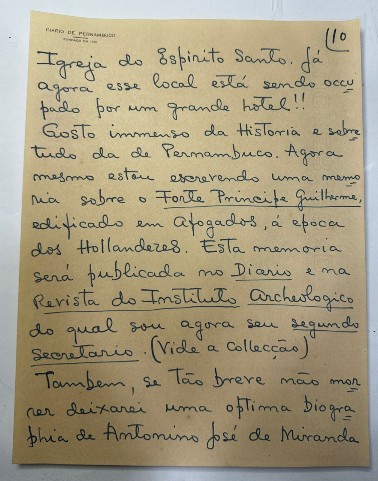 DIARIO DE PERNAMBUCO
(10
Igreja do Espirito Santo. Já
agora esse local está sendo occu
pado por um grande hotel!!
Gosto immenso da Historia e sobre
tudo, da de Pernambuco. Agora
mesmo estou escrevendo uma memo
ria sobre o Forte Principe Guilherme,
edificado em Afogados, á epoca
dos Hollandezes. Esta memoria
será publicada no Diario e na
Revista do Instituto Archeologico
do qual sou agora seu segundo
secretario. (Vide a collecção)
Tambem, se tão breve não mor
rer deixarei uma optima biogra
phia de Antonino José de Miranda